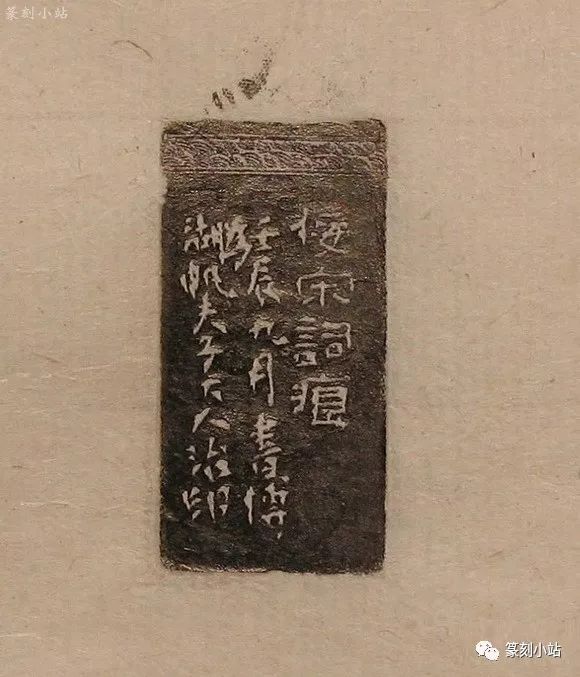 佞宋詞痕
壬辰九月書博
湖帆夫子大人治印
篆刻小站
篆刻小站